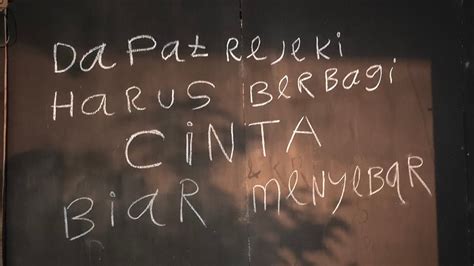 DaPat Rejeki
HARUS BeRBagi
CiNTA
BiaR MeNyeBaR